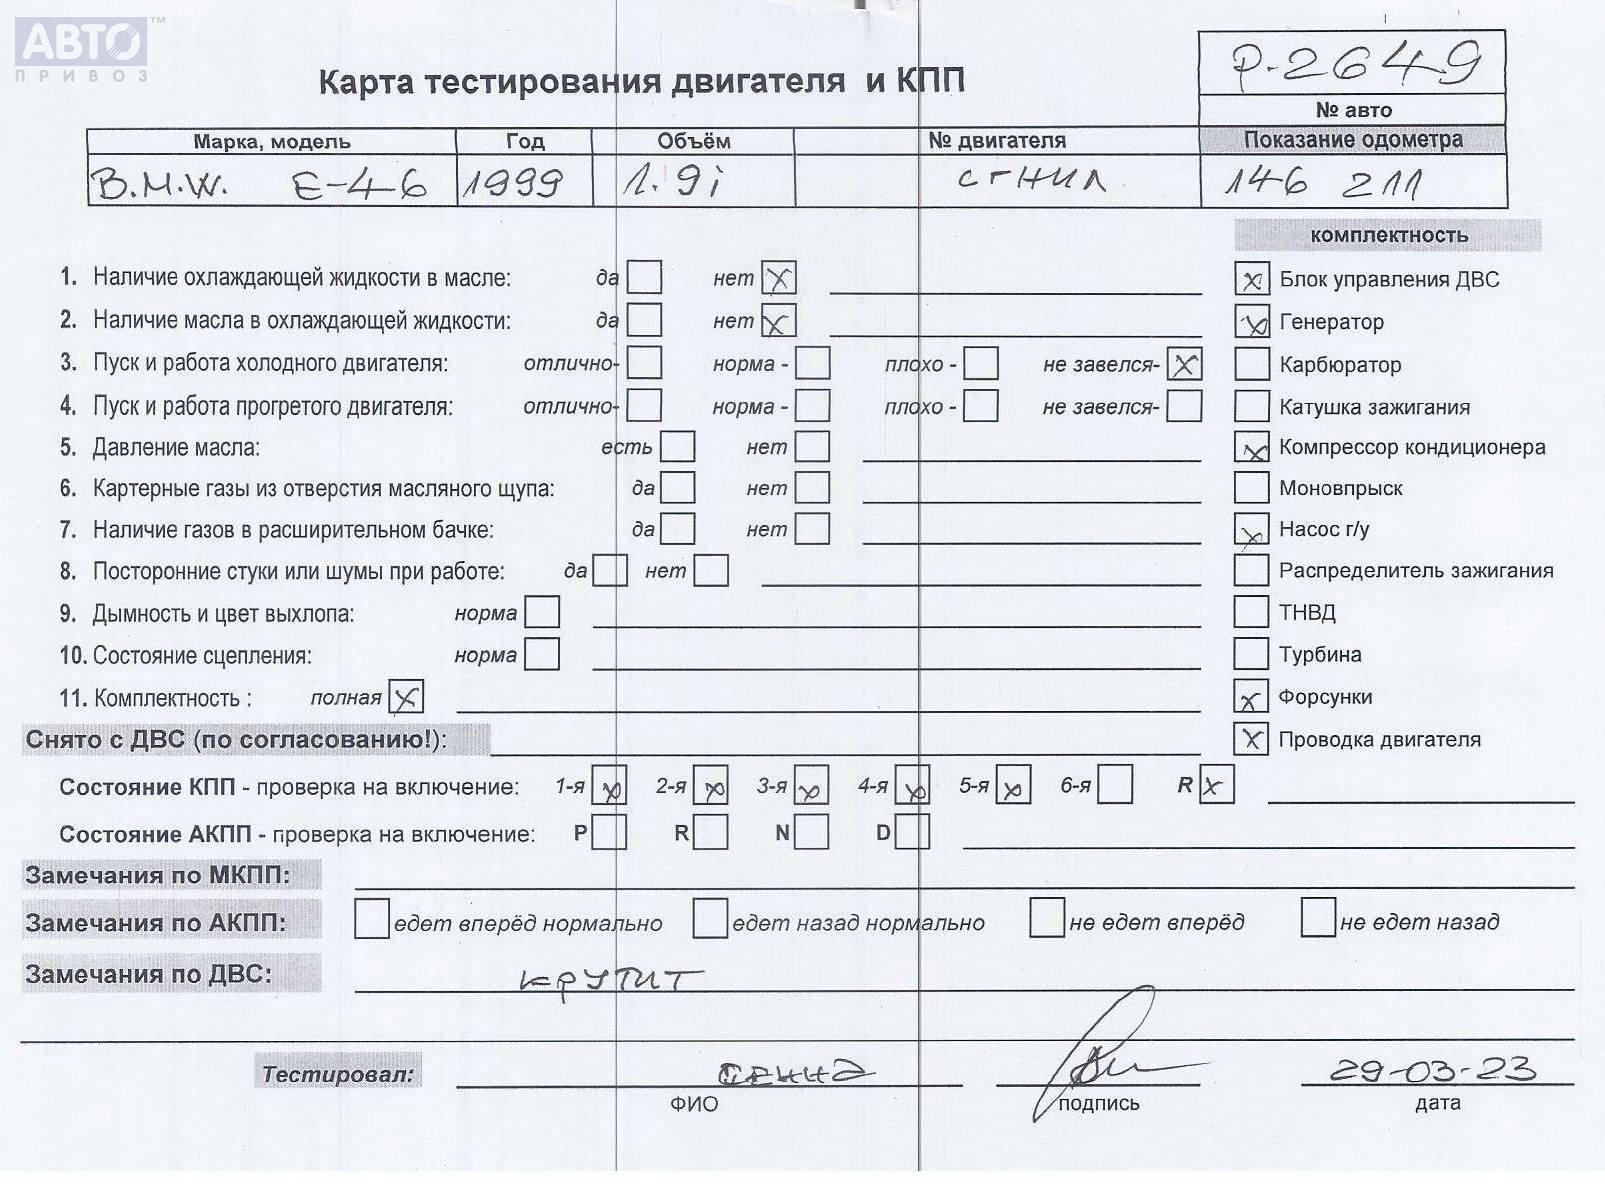 АВТО™
ПРИВОЗ
Карта тестирования двигателя и КПП
Р-2649
№ авто
Марка, модель Год Объём № двигателя Показание одометра
B.M.W. E-46 1999 1.9i сгнил 146 211
комплектность
1. Наличие охлаждающей жидкости в масле: да нет X Блок управления ДВС
2. Наличие масла в охлаждающей жидкости: да нет X Генератор
3. Пуск и работа холодного двигателя: отлично- норма - плохо - не завелся- X Карбюратор
4. Пуск и работа прогретого двигателя: отлично- норма - плохо - не завелся- Катушка зажигания
5. Давление масла: есть нет X Компрессор кондиционера
6. Картерные газы из отверстия масляного щупа: да нет Моновпрыск
7. Наличие газов в расширительном бачке: да нет X Насос г/у
8. Посторонние стуки или шумы при работе: да нет Распределитель зажигания
9. Дымность и цвет выхлопа: норма ТНВД
10. Состояние сцепления: норма Турбина
11. Комплектность : полная X X Форсунки
Снято с ДВС (по согласованию!): X Проводка двигателя
Состояние КПП - проверка на включение: 1-я X 2-я X 3-я X 4-я X 5-я X 6-я R X
Состояние АКПП - проверка на включение: P R N D
Замечания по МКПП:
Замечания по АКПП: едет вперёд нормально едет назад нормально не едет вперёд не едет назад
Замечания по ДВС: крутит
Тестировал: 29-03-23
ФИО подпись дата